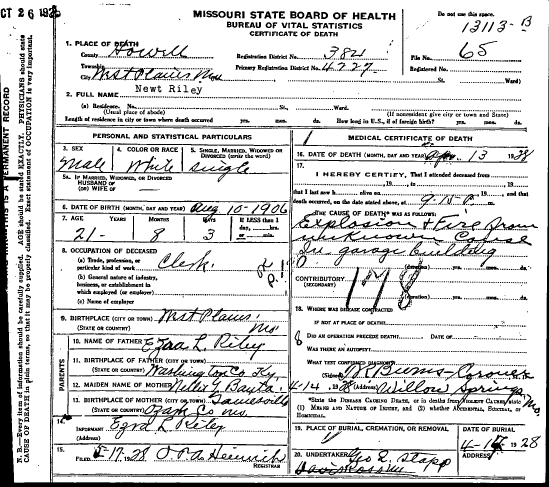 OCT 26 19
MISSOURI STATE BOARD OF HEALTH
BUREAU OF VITAL STATISTICS
CERTIFICATE OF DEATH
Do not use this space.
13113-B
1. PLACE OF DEATH
County Howell Registration District No. 384 File No. 65
Township Primary Registration District No. 4227 Registered No.
City West Plains Mo St., Ward)
2. FULL NAME Newt Riley
(a) Residence. No. St., Ward.
(Usual place of abode) (If nonresident give city or town and State)
Length of residence in city or town where death occurred yrs. mos. ds. How long in U.S., if of foreign birth? yrs. mos. ds.
PERSONAL AND STATISTICAL PARTICULARS
3. SEX 4. COLOR OR RACE 5. SINGLE, MARRIED, WIDOWED OR
DIVORCED (write the word)
Male White Single
5a. IF MARRIED, WIDOWED, OR DIVORCED
HUSBAND OF
(OR) WIFE OF
6. DATE OF BIRTH (MONTH, DAY AND YEAR) Aug 10-1906
7. AGE YEARS MONTHS DAYS If LESS than 1
day, hrs.
or min.
21- 8 3
8. OCCUPATION OF DECEASED
(a) Trade, profession, or
particular kind of work Clerk
(b) General nature of industry,
business, or establishment in
which employed (or employer)
(c) Name of employer
9. BIRTHPLACE (CITY OR TOWN) West Plains
(STATE OR COUNTRY) Mo
PARENTS
10. NAME OF FATHER Ezra L. Riley
11. BIRTHPLACE OF FATHER (CITY OR TOWN)
(STATE OR COUNTRY) Washington Co Ky
12. MAIDEN NAME OF MOTHER Nettie G.
13. BIRTHPLACE OF MOTHER (CITY OR TOWN) Gainesville
(STATE OR COUNTRY) Ozark Co Mo.
14.
INFORMANT Ezra L Riley
(Address)
15.
FILED 5-17-1928 Heinrich
REGISTRAR
MEDICAL CERTIFICATE OF DEATH
16. DATE OF DEATH (MONTH, DAY AND YEAR) Apr. 13 1928
17.
I HEREBY CERTIFY, That I attended deceased from
19 , to 19
that I last saw h alive on 19 , and that
death occurred, on the date stated above, at
THE CAUSE OF DEATH WAS AS FOLLOWS:
Explosion & Fire from
unknown Cause
In garage building
(duration) yrs. mos. ds.
CONTRIBUTORY
(SECONDARY)
178
(duration) yrs. mos. ds.
18. WHERE WAS DISEASE CONTRACTED
IF NOT AT PLACE OF DEATH?
DID AN OPERATION PRECEDE DEATH? DATE OF
WAS THERE AN AUTOPSY?
WHAT TEST CONFIRMED DIAGNOSIS?
(Signed) Burns-Coroner
4-14, 1928 (Address) Willow Springs, Mo.
*State the DISEASE CAUSING DEATH, or in deaths from VIOLENT CAUSES, state
(1) MEANS AND NATURE OF INJURY, and (2) whether ACCIDENTAL, SUICIDAL, or
HOMICIDAL.
19. PLACE OF BURIAL, CREMATION, OR REMOVAL DATE OF BURIAL
1928
20. UNDERTAKER Geo D. Stapp ADDRESS
N. B.—Every item of information should be carefully supplied. AGE should be stated EXACTLY. PHYSICIANS should state
CAUSE OF DEATH in plain terms, so that it may be properly classified. Exact statement of OCCUPATION is very important.